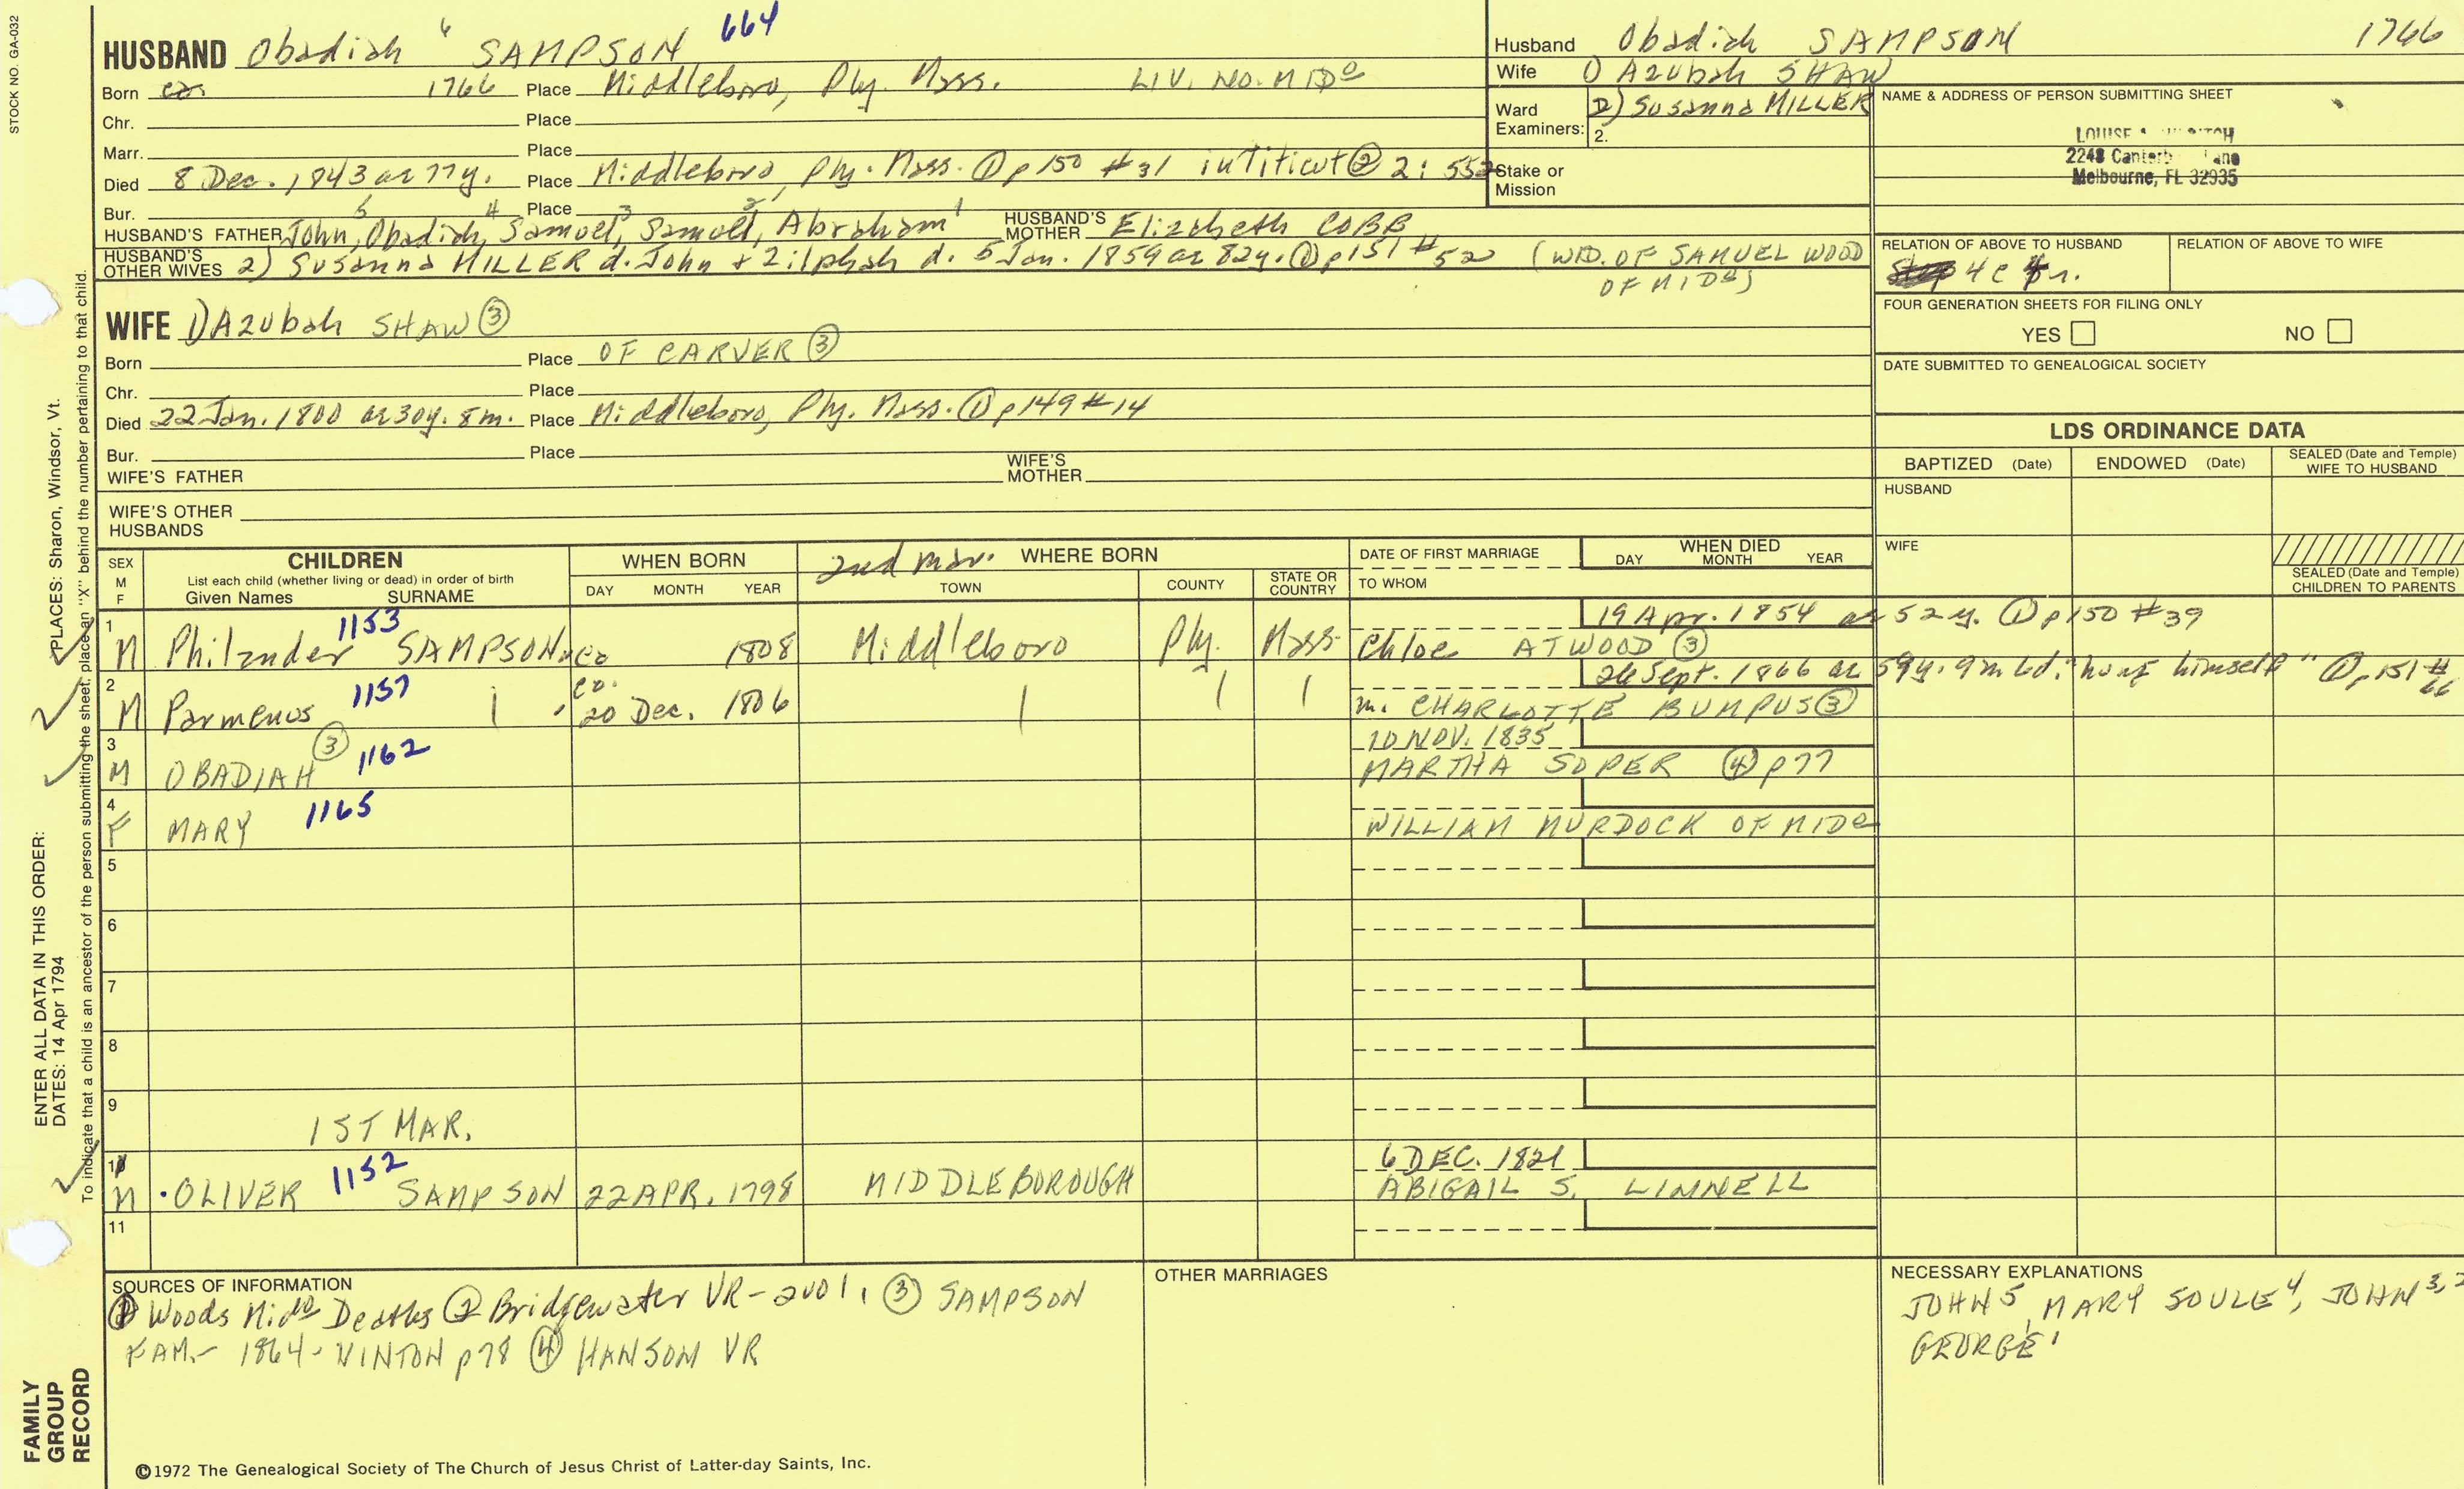 STOCK NO. GA-032
HUSBAND Obadiah 6 SAMPSON 664
Born ca. 1766 Place Middleboro, Ply. Mass. LIV. NO. MIDo
Chr. Place
Marr. Place
Died 8 Dec. 1843 ae 77y. Place Middleboro, Ply. Mass. ① p150 #31 in Titicut ② 2: 552
Bur. Place
HUSBAND'S FATHER John, 5 Obadiah, 4 Samuel, 3 Samuel, 2 Abraham 1 HUSBAND'S MOTHER Elizabeth COBB
HUSBAND'S OTHER WIVES 2) Susanna MILLER d. John + Zilphah d. 5 Jan. 1859 ae 82y. ① p151 #52 (WID. OF SAMUEL WOOD
OF MIDo)
WIFE 1) Azubah SHAW ③
Born Place OF CARVER ③
Chr. Place
Died 22 Jan. 1800 ae 30y. 8m. Place Middleboro, Ply. Mass. ① p149 #14
Bur. Place
WIFE'S FATHER WIFE'S MOTHER
WIFE'S OTHER HUSBANDS
Husband Obadiah SAMPSON 1766
Wife 1) Azubah SHAW
Ward 2) Susanna MILLER
Examiners: 2.
Stake or
Mission
NAME & ADDRESS OF PERSON SUBMITTING SHEET
LOUISE
2248
Melbourne, FL 32935
RELATION OF ABOVE TO HUSBAND RELATION OF ABOVE TO WIFE
4c
FOUR GENERATION SHEETS FOR FILING ONLY
YES NO
DATE SUBMITTED TO GENEALOGICAL SOCIETY
LDS ORDINANCE DATA
BAPTIZED (Date) ENDOWED (Date) SEALED (Date and Temple) WIFE TO HUSBAND
HUSBAND
WIFE
SEALED (Date and Temple)
CHILDREN TO PARENTS
SEX M F CHILDREN WHEN BORN 2nd mar. WHERE BORN DATE OF FIRST MARRIAGE WHEN DIED
List each child (whether living or dead) in order of birth DAY MONTH YEAR
Given Names SURNAME DAY MONTH YEAR TOWN COUNTY STATE OR COUNTRY TO WHOM
1 1153 19 Apr. 1854 ae 52 y. ① p150 #39
M Philander SAMPSON ca 1808 Middleboro Ply. Mass Chloe ATWOOD ③
2 1157 ca. 26 Sept. 1866 ae 59y. 9m 6d. "hung himself" ① p151 #66
M Parmenus 20 Dec. 1806 m. CHARLOTTE BUMPUS ③
3 ③ 1162 10 NOV. 1835
M OBADIAH MARTHA SOPER ④ p77
4 1165
F MARY WILLIAM MURDOCK OF MIDo
5
6
7
8
9
1ST MAR.
10 1152 6 DEC. 1821
M OLIVER SAMPSON 22 APR. 1798 MIDDLEBOROUGH ABIGAIL S. LINNELL
11
SOURCES OF INFORMATION
① Woods Mido Deaths ② Bridgewater VR - 2vol. ③ SAMPSON
FAM. - 1864 - VINTON p78 ④ HANSON VR
OTHER MARRIAGES
NECESSARY EXPLANATIONS
JOHN 5, MARY SOULE 4, JOHN 3, 2
GEORGE 1
©1972 The Genealogical Society of The Church of Jesus Christ of Latter-day Saints, Inc.
ENTER ALL DATA IN THIS ORDER:
DATES: 14 Apr 1794
PLACES: Sharon, Windsor, Vt.
To indicate that a child is an ancestor of the person submitting the sheet, place an "X" behind the number pertaining to that child.
FAMILY
GROUP
RECORD